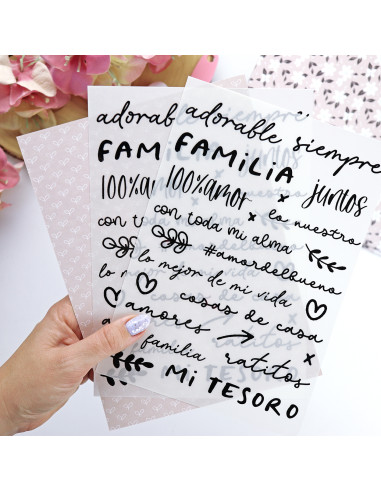 adorab adorable siempre
FAM FAMiLiA
100%a 100%amor x juntos
x lo nuestro
con t con toda mi alma
#amordelbueno
lo lo mejor de mi vida
cosas de casa
amores
familia ratitos x
Mi TESORO